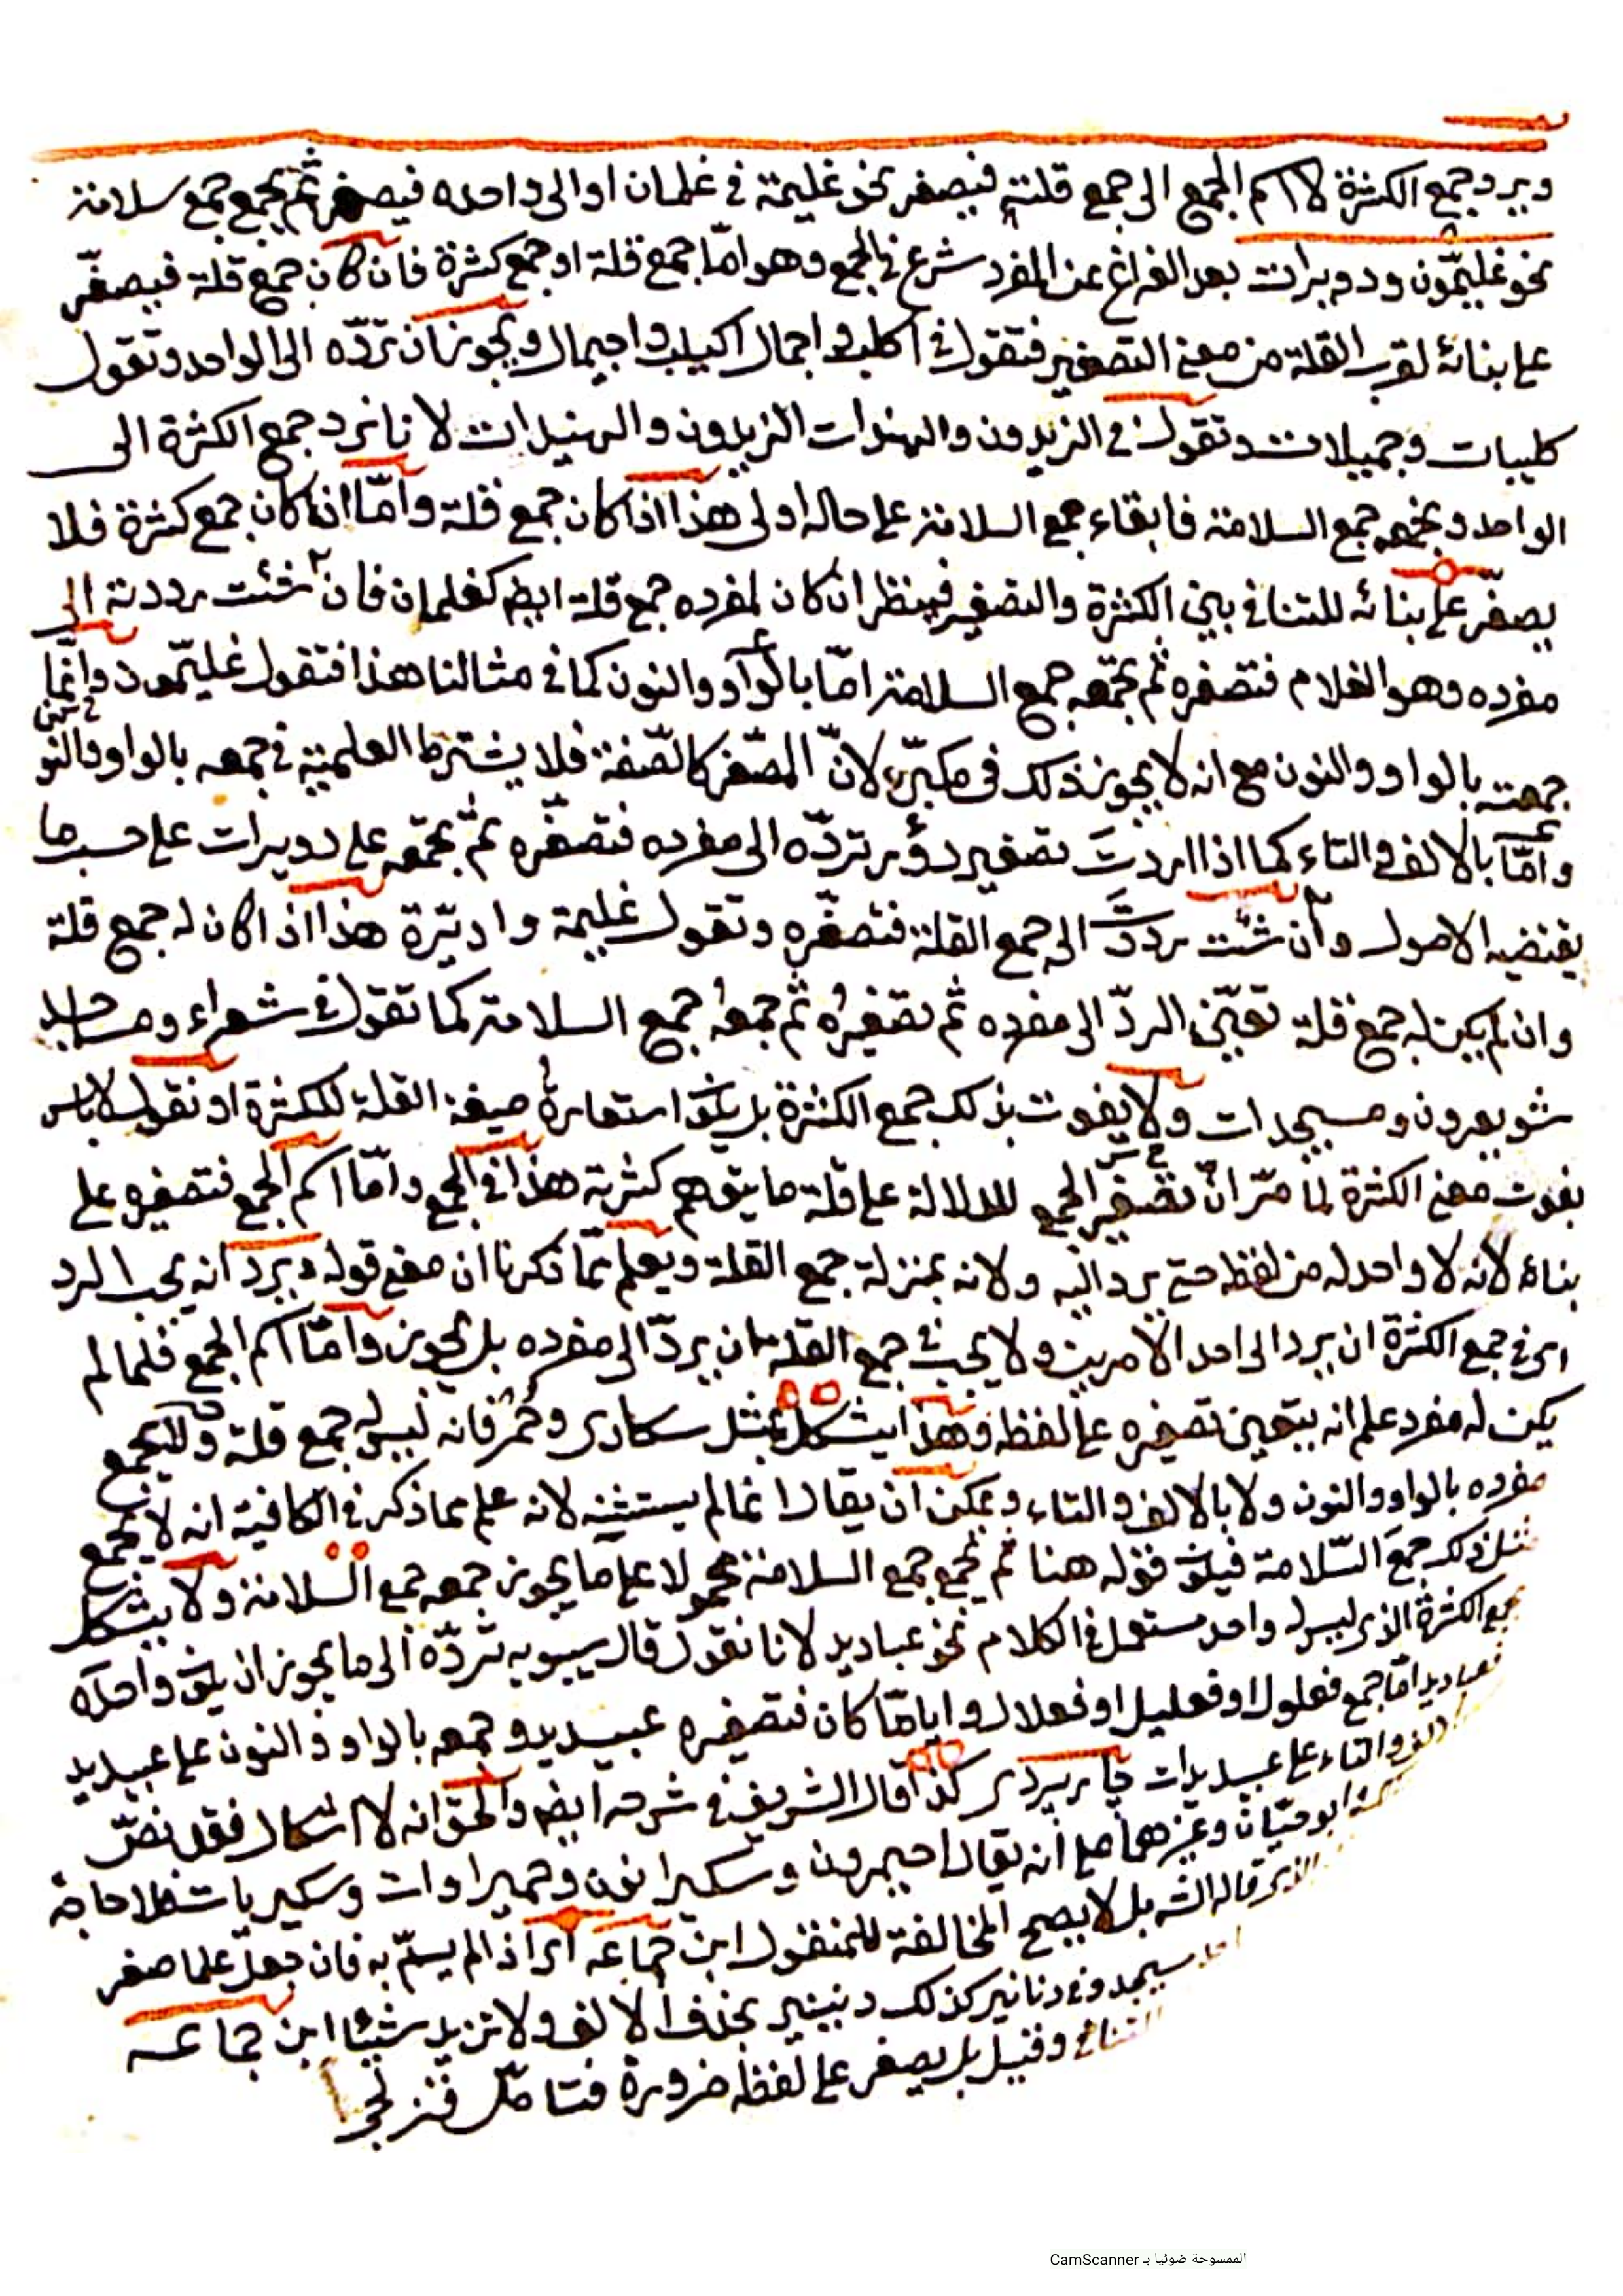 ويرد جمع الكثرة لا اسم الجمع الى جمع قلته فيصغر نحو غليمة في غلمان او الى واحده فيصغر ثم يجمع جمع سلامة
نحو غليمّون ودويرات بعد الفراغ عن المفرد شرع في الجمع وهو امّا جمع قلة او جمع كثرة فان كان جمع قلة فيصغّر
على بنائه لقرب القلة من معنى التصغير فتقول في اكلب واجمال اكيلب واجيمال ويجوز ان تردّه الى الواحد وتقول
كليبات وجميلات وتقول في الزيدون والهندات الزييدون والهنيدات لانا نرد جمع الكثرة الى
الواحد ونجمعه جمع السلامة فابقاء جمع السلامة على حاله اولى هذا اذا كان جمع قلة وامّا اذا كان جمع كثرة فلا
يصغّر على بنائه للتنافي بين الكثرة والتصغير فينظر ان كان لمفرده جمع قلة ايضا كغلمان فان شئت رددته الى
مفرده وهو الغلام فتصغره ثم تجمعه جمع السلامة امّا بالواو والنون كما في مثالنا هذا فتقول غليّمون وانّما
جمعته بالواو والنون مع انه لا يجوز ذلك في مكبّره لانّ المصّغر كالصّفة فلا يشترط العلمية في جمعه بالواو والنو
وامّا بالالف والتاء كما اذا اردتَ تصغير دؤر تردّه الى مفرده فتصغّره ثمّ تجمعه على دويرات على حسب ما
يقتضيه الاصول وان شئت رددتَ الى جمع القلة فتصغّره وتقول غليمة وادبّرة هذا اذا كان له جمع قلة
وان لم يكن له جمع قلة تعيّن الردّ الى مفرده ثم تصغيره ثم جمعه جمع السلامة كما تقول في شعراء ومساجد
شويعرون ومسيجدات ولا يفوت بذلك جمع الكثرة بل يلزم استعارة صيغة القلة للكثرة او نقول لا باس
بفوت معنى الكثرة لما مرّ ان تصغير الجمع للدلالة على قلة ما يتوهم كثرته هذا في الجمع وامّا اسم الجمع فتصغيره على
بناءه لانه لا واحد له من لفظه حتى يرد اليه ولانه بمنزلة جمع القلة ويعلم ممّا ذكرنا ان معنى قوله ويرد انه يجب الرد
اى في جمع الكثرة ان يرد الى احد الامرين ولا يجب في جمع القلة ان يردّ الى مفرده بل يجوز وامّا اسم الجمع فلما لم
يكن له مفرد علم انه يتعين تصغيره على لفظه وهذا يشكل بمثل سكارى وحُمُر فانه ليس له جمع قلة ولا يجمع
مفرده بالواو والنون ولا بالالف والتاء ويمكن ان يقال انما لم يستثنه لانه علم مما ذكر في الكافية انه لا يجمع
مثل ذلك جمعَ السّلامة فيكون قوله هنا ثم يجمع جمع السلامة محمولا على ما يجوز جمعه جمع السلامة ولا يشكل
بجمع الكثرة الذى ليس له واحد مستعمل في الكلام نحو عباديد لانا نقول قال سيبويه تردّه الى ما يجوز ان يكون واحده
فعباديد امّا جمع فعلول او فعليل او فعلال وايامّا كان فتصغيره عبيديد وجمعه بالواو والنون على عبيديد
والالف والتاء على عبيديدات جاربردى كذا قال الشريف في شرحه ايضا والحق انه لا اشكال فقد نصّ
ابو حيّان وغيرهما على انه يقال احيمرون وسكيرانون وحميراوات وسكيريات فلا حاجة
الذى قاله الش بل لا يصح المخالفة للمنقول ابن جماعه اى اذا لم يسمّ به فان جعل علما صغر
مسيجد وفي دنانير كذلك دنينير بحذف الالف ولا تزيد شيئا ابن جماعه
التنافي وقيل بل يصغر على لفظه ضرورة فتامّل قزلجى
الممسوحة ضوئيا بـ CamScanner